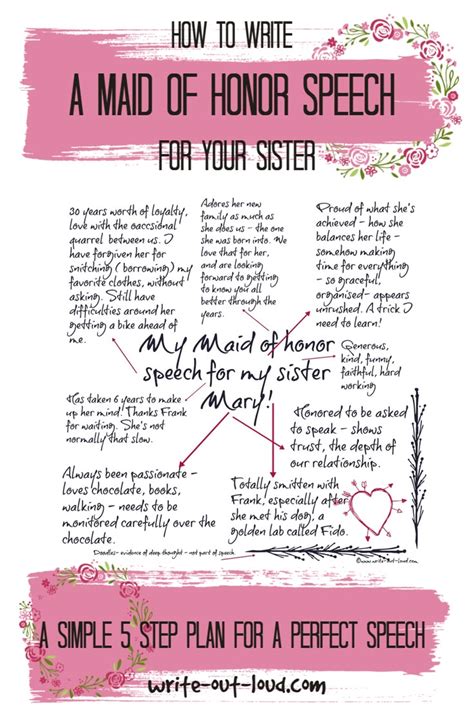 HOW TO WRITE
A MAID OF HONOR SPEECH
FOR YOUR SISTER
30 years worth of loyalty,
love with the oaccsional
quarrel between us. I
have forgiven her for
snitching (borrowing) my
favorite clothes, without
asking. Still have
difficulties around her
getting a bike ahead of
me.
Adores her new
family as much as
she does us - the one
she was born into. We
love that for her,
and are looking
forward to getting
to know you all
better through the
years.
Proud of what she's
achieved - how she
balances her life -
somehow making
time for everything
- so graceful,
organised- appears
unrushed. A trick I
need to learn!
My Maid of honor
speech for my sister
Mary!
Generous,
kind, funny,
faithful, hard
working
Has taken 6 years to make
up her mind! Thanks Frank
for waiting. She's not
normally that slow.
Honored to be asked
to speak - shows
trust, the depth of
our relationship.
Always been passionate -
loves chocolate, books,
walking - needs to be
monitored carefully over the
chocolate.
Totally smitten with
Frank, especially after
she met his dog, a
golden lab called Fido.
Doodles- evidence of deep thought - not part of speech.
©www.write-out-loud.com
A SIMPLE 5 STEP PLAN FOR A PERFECT SPEECH
write-out-loud.com